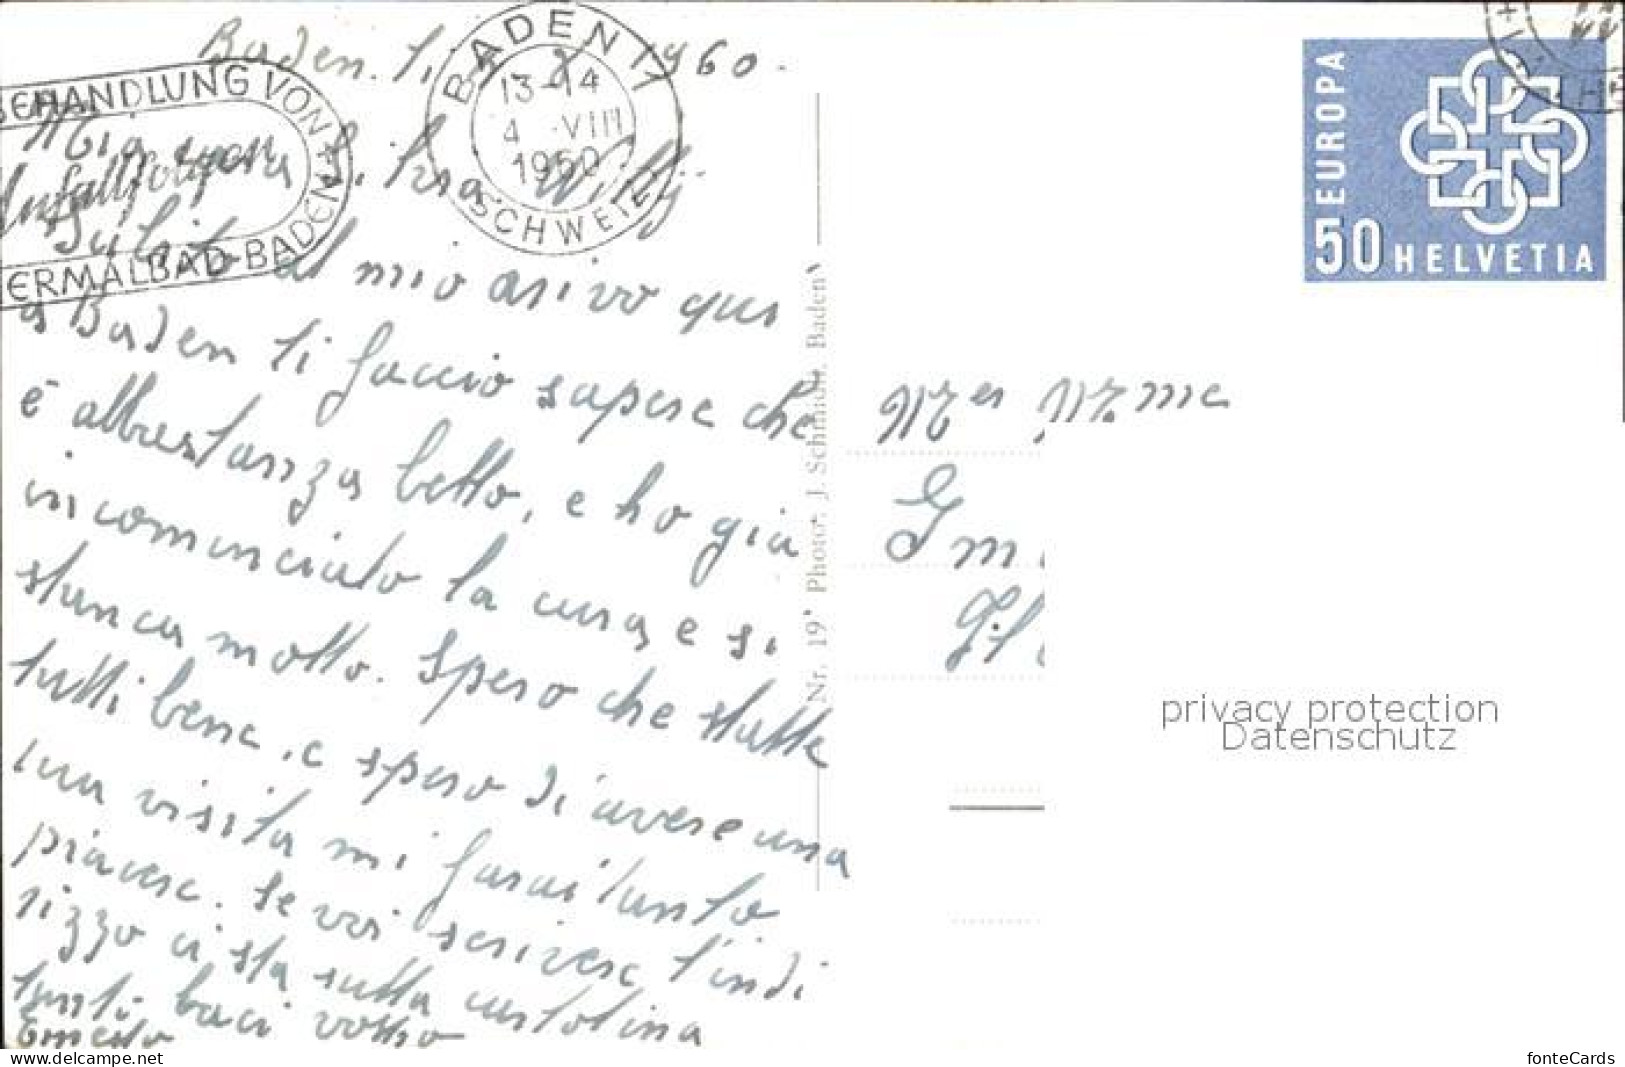 Baden. 1. 8 1960.
BADEN 1
13-14
4. VIII
1960
SCHWEIZ
BEHANDLUNG VON
Unfallfolgen
THERMALBAD BADEN
EUROPA
50 HELVETIA
Mia cara
Subito al mio arivo qui
a Baden ti faccio sapere che
è abbastanza bello, e ho gia
incominciato la cura e si
stanca molto. Spero che state
tutti bene, e spero di avere una
tua visita mi farai tanto
piacere. Se voi scrivere l'indi
rizzo ci sta sulla cartolina
tanti baci vostro
Ernesto
Mr et Mme
Nr. 19 Photo: J. Schmidli, Baden
privacy protection
Datenschutz
www.delcampe.net
fonteCards